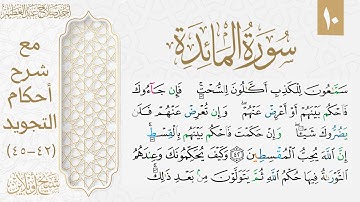 ١٠
سُورَةُ المَائِدَة
مع
شرح
أحكام
التجويد
(٤٢-٤٥)
سَمَّٰعُونَ لِلْكَذِبِ أَكَّٰلُونَ لِلسُّحْتِ ۚ فَإِن جَآءُوكَ
فَٱحْكُم بَيْنَهُمْ أَوْ أَعْرِضْ عَنْهُمْ ۖ وَإِن تُعْرِضْ عَنْهُمْ فَلَن
يَضُرُّوكَ شَيْـًٔا ۖ وَإِنْ حَكَمْتَ فَٱحْكُم بَيْنَهُم بِٱلْقِسْطِ ۚ
إِنَّ ٱللَّهَ يُحِبُّ ٱلْمُقْسِطِينَ ٤٢ وَكَيْفَ يُحَكِّمُونَكَ وَعِندَهُمُ
ٱلتَّوْرَىٰةُ فِيهَا حُكْمُ ٱللَّهِ ثُمَّ يَتَوَلَّوْنَ مِنۢ بَعْدِ ذَٰلِكَ ۚ